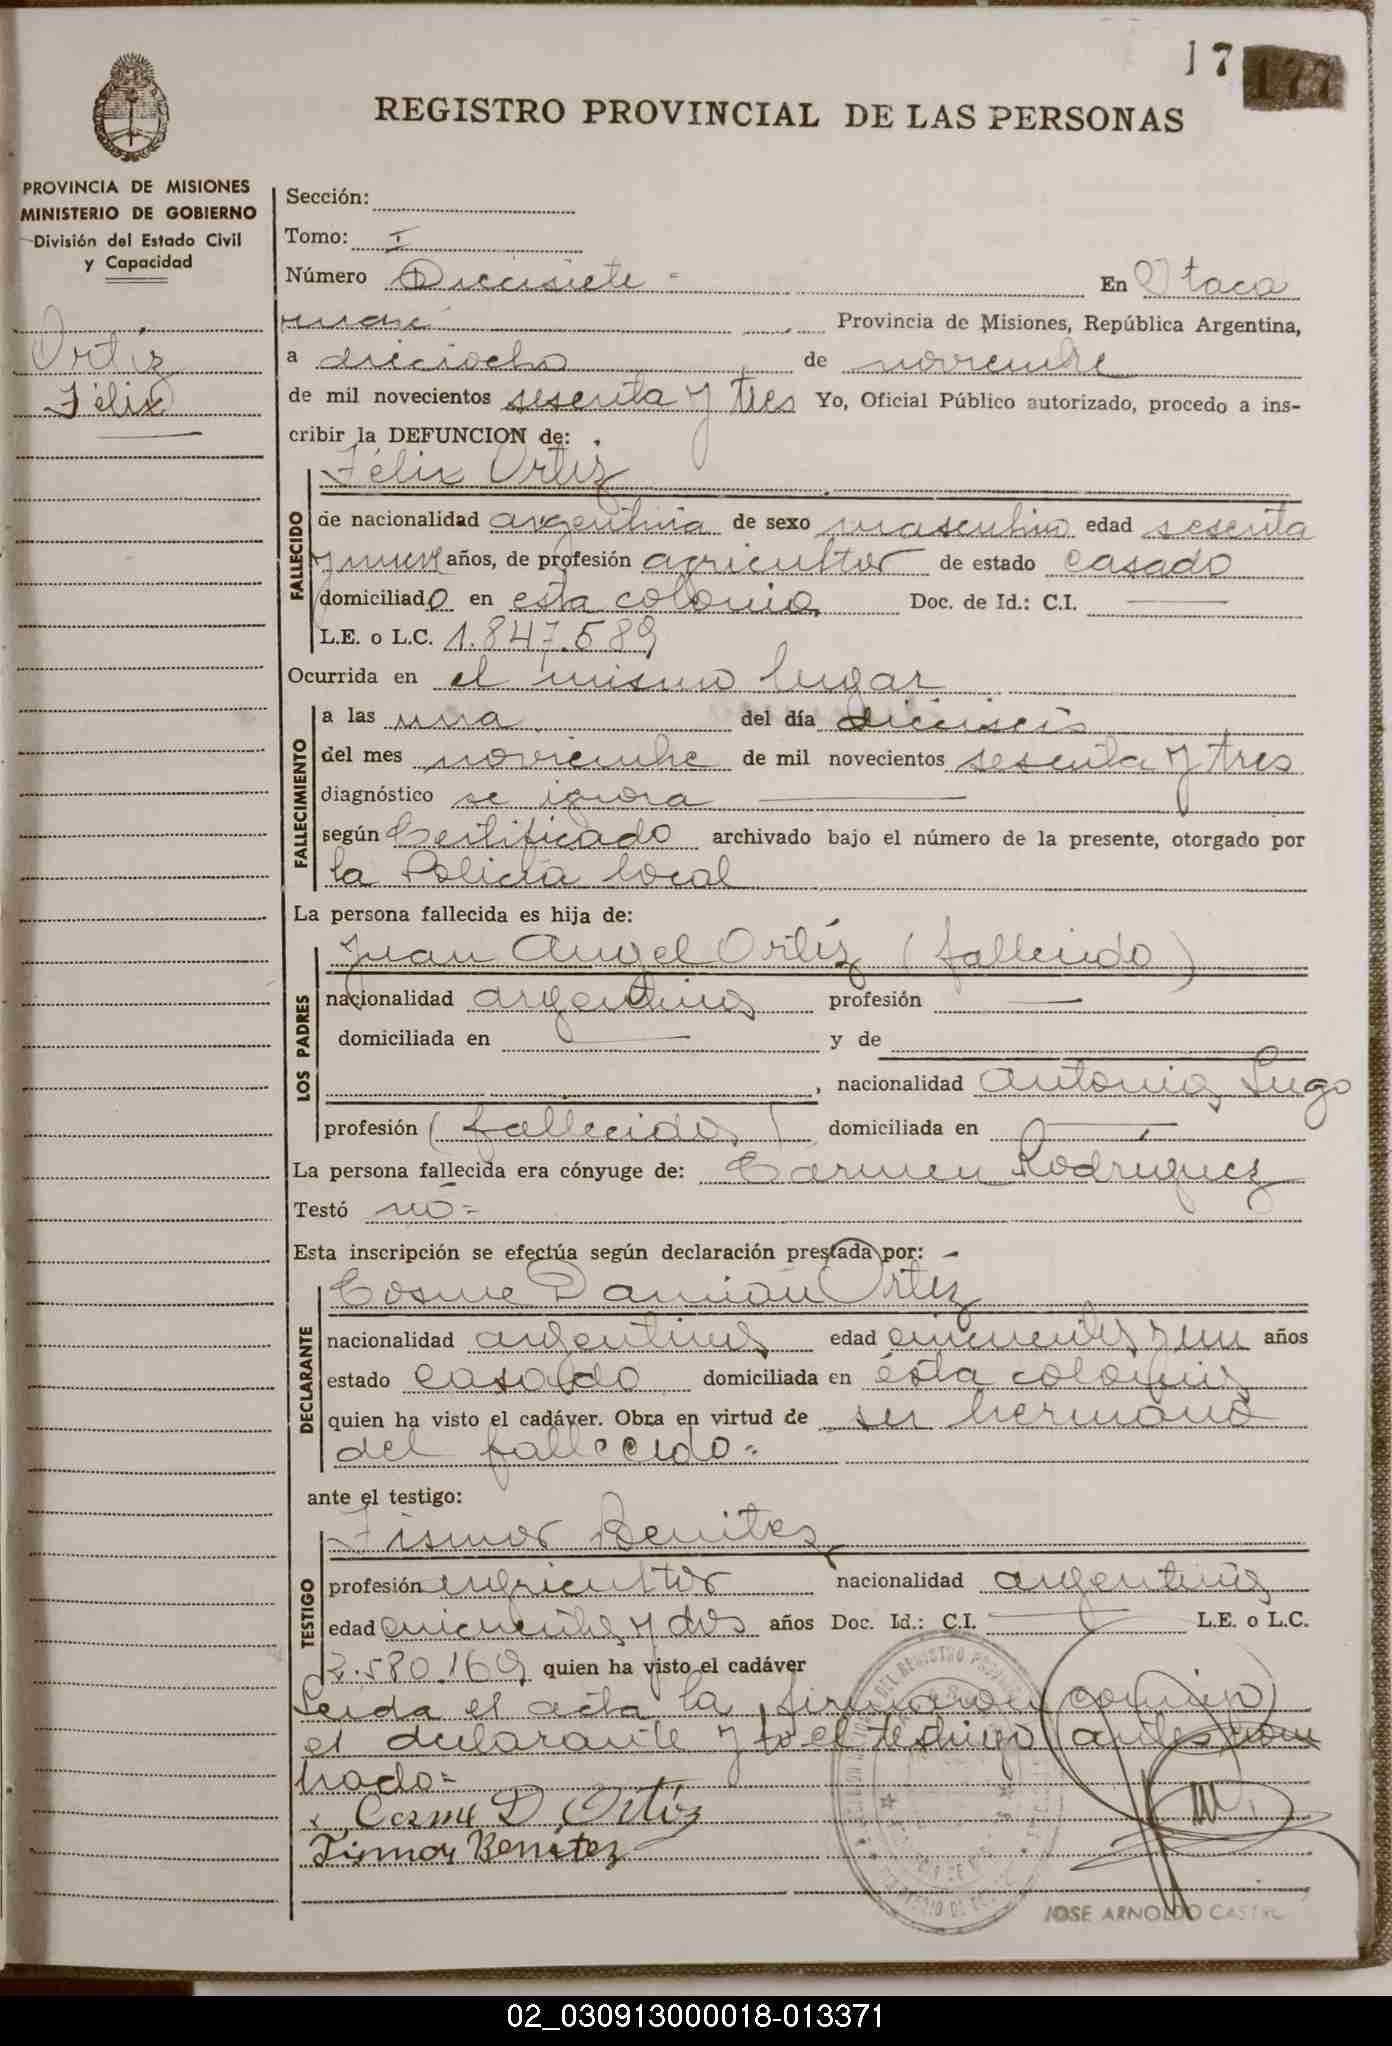 17 177
REGISTRO PROVINCIAL DE LAS PERSONAS
PROVINCIA DE MISIONES
MINISTERIO DE GOBIERNO
División del Estado Civil
y Capacidad
Ortíz
Félix
Sección:
Tomo: I
Número Diecisiete = En Itaca
ruaré Provincia de Misiones, República Argentina,
a dieciocho de noviembre
de mil novecientos sesenta y tres Yo, Oficial Público autorizado, procedo a ins-
cribir la DEFUNCION de:
Félix Ortíz
FALLECIDO
de nacionalidad argentina de sexo masculino edad sesenta
y nueve años, de profesión agricultor de estado casado
domiciliado en esta colonia Doc. de Id.: C.I. —
L.E. o L.C. 1.847.589
Ocurrida en el mismo lugar
FALLECIMIENTO
a las una del día dieciseis
del mes noviembre de mil novecientos sesenta y tres
diagnóstico se ignora —
según Certificado archivado bajo el número de la presente, otorgado por
la Policía local
La persona fallecida es hija de:
LOS PADRES
Juan Angel Ortíz (fallecido)
nacionalidad argentina profesión —
domiciliada en — y de
, nacionalidad Antonia Lugo
profesión (fallecida) domiciliada en —
La persona fallecida era cónyuge de: Cármen Rodríguez
Testó nó =
Esta inscripción se efectúa según declaración prestada por: -
DECLARANTE
Cosme Damián Ortíz
nacionalidad argentina edad cincuenta y un años
estado casado domiciliada en ésta colonia
quien ha visto el cadáver. Obra en virtud de ser hermano
del fallecido =
ante el testigo:
TESTIGO
Benitez
profesión agricultor nacionalidad argentina
edad cincuenta y dos años Doc. Id.: C.I. — L.E. o L.C.
2.580.169 quien ha visto el cadáver
Leida el acta la firmaron conmigo
el declarante y el testigo antes nom
brado =
x Cosme D. Ortíz
Benitez
JOSE ARNOLDO
02_030913000018-013371